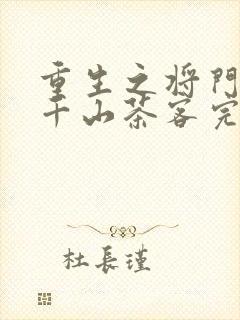 重生之将门
千山茶客完
杜長瑾